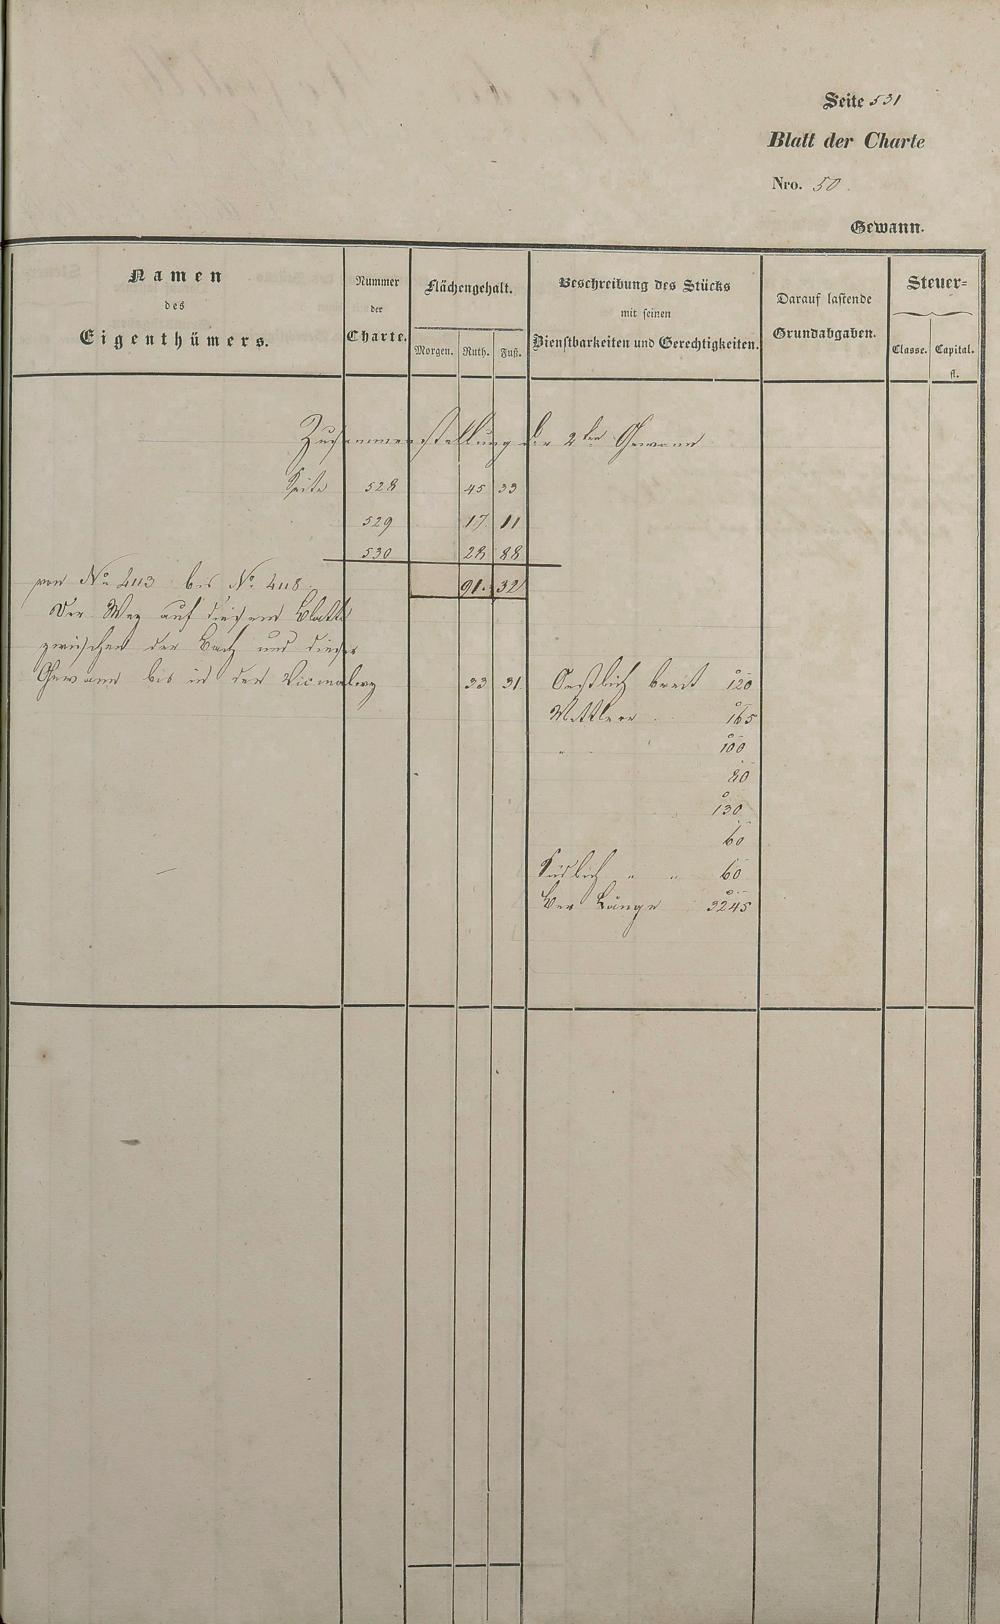 Seite 531
Blatt der Charte
Nro. 50
Gewann.
Namen
des
Eigenthümers.
Nummer
der
Charte.
Flächengehalt.
Morgen. Ruth. Fuß.
Beschreibung des Stücks
mit seinen
Dienstbarkeiten und Gerechtigkeiten.
Darauf lastende
Grundabgaben.
Steuer=
Classe. Capital.
fl.
Zusammenstellung der 2ten Gewann
Seite 528 45 33
529 17 11
530 28 88
von No 403 bis No 408. 91. 32
Der Weg auf diesem Blatt
zwischen der Bach und dieser
Gewann bis in den Vicinalweg 33 31 Oestlich breit 120
Mittlere 165
" 100
80
130
60
Südlich " " 60
Der Länge 3245